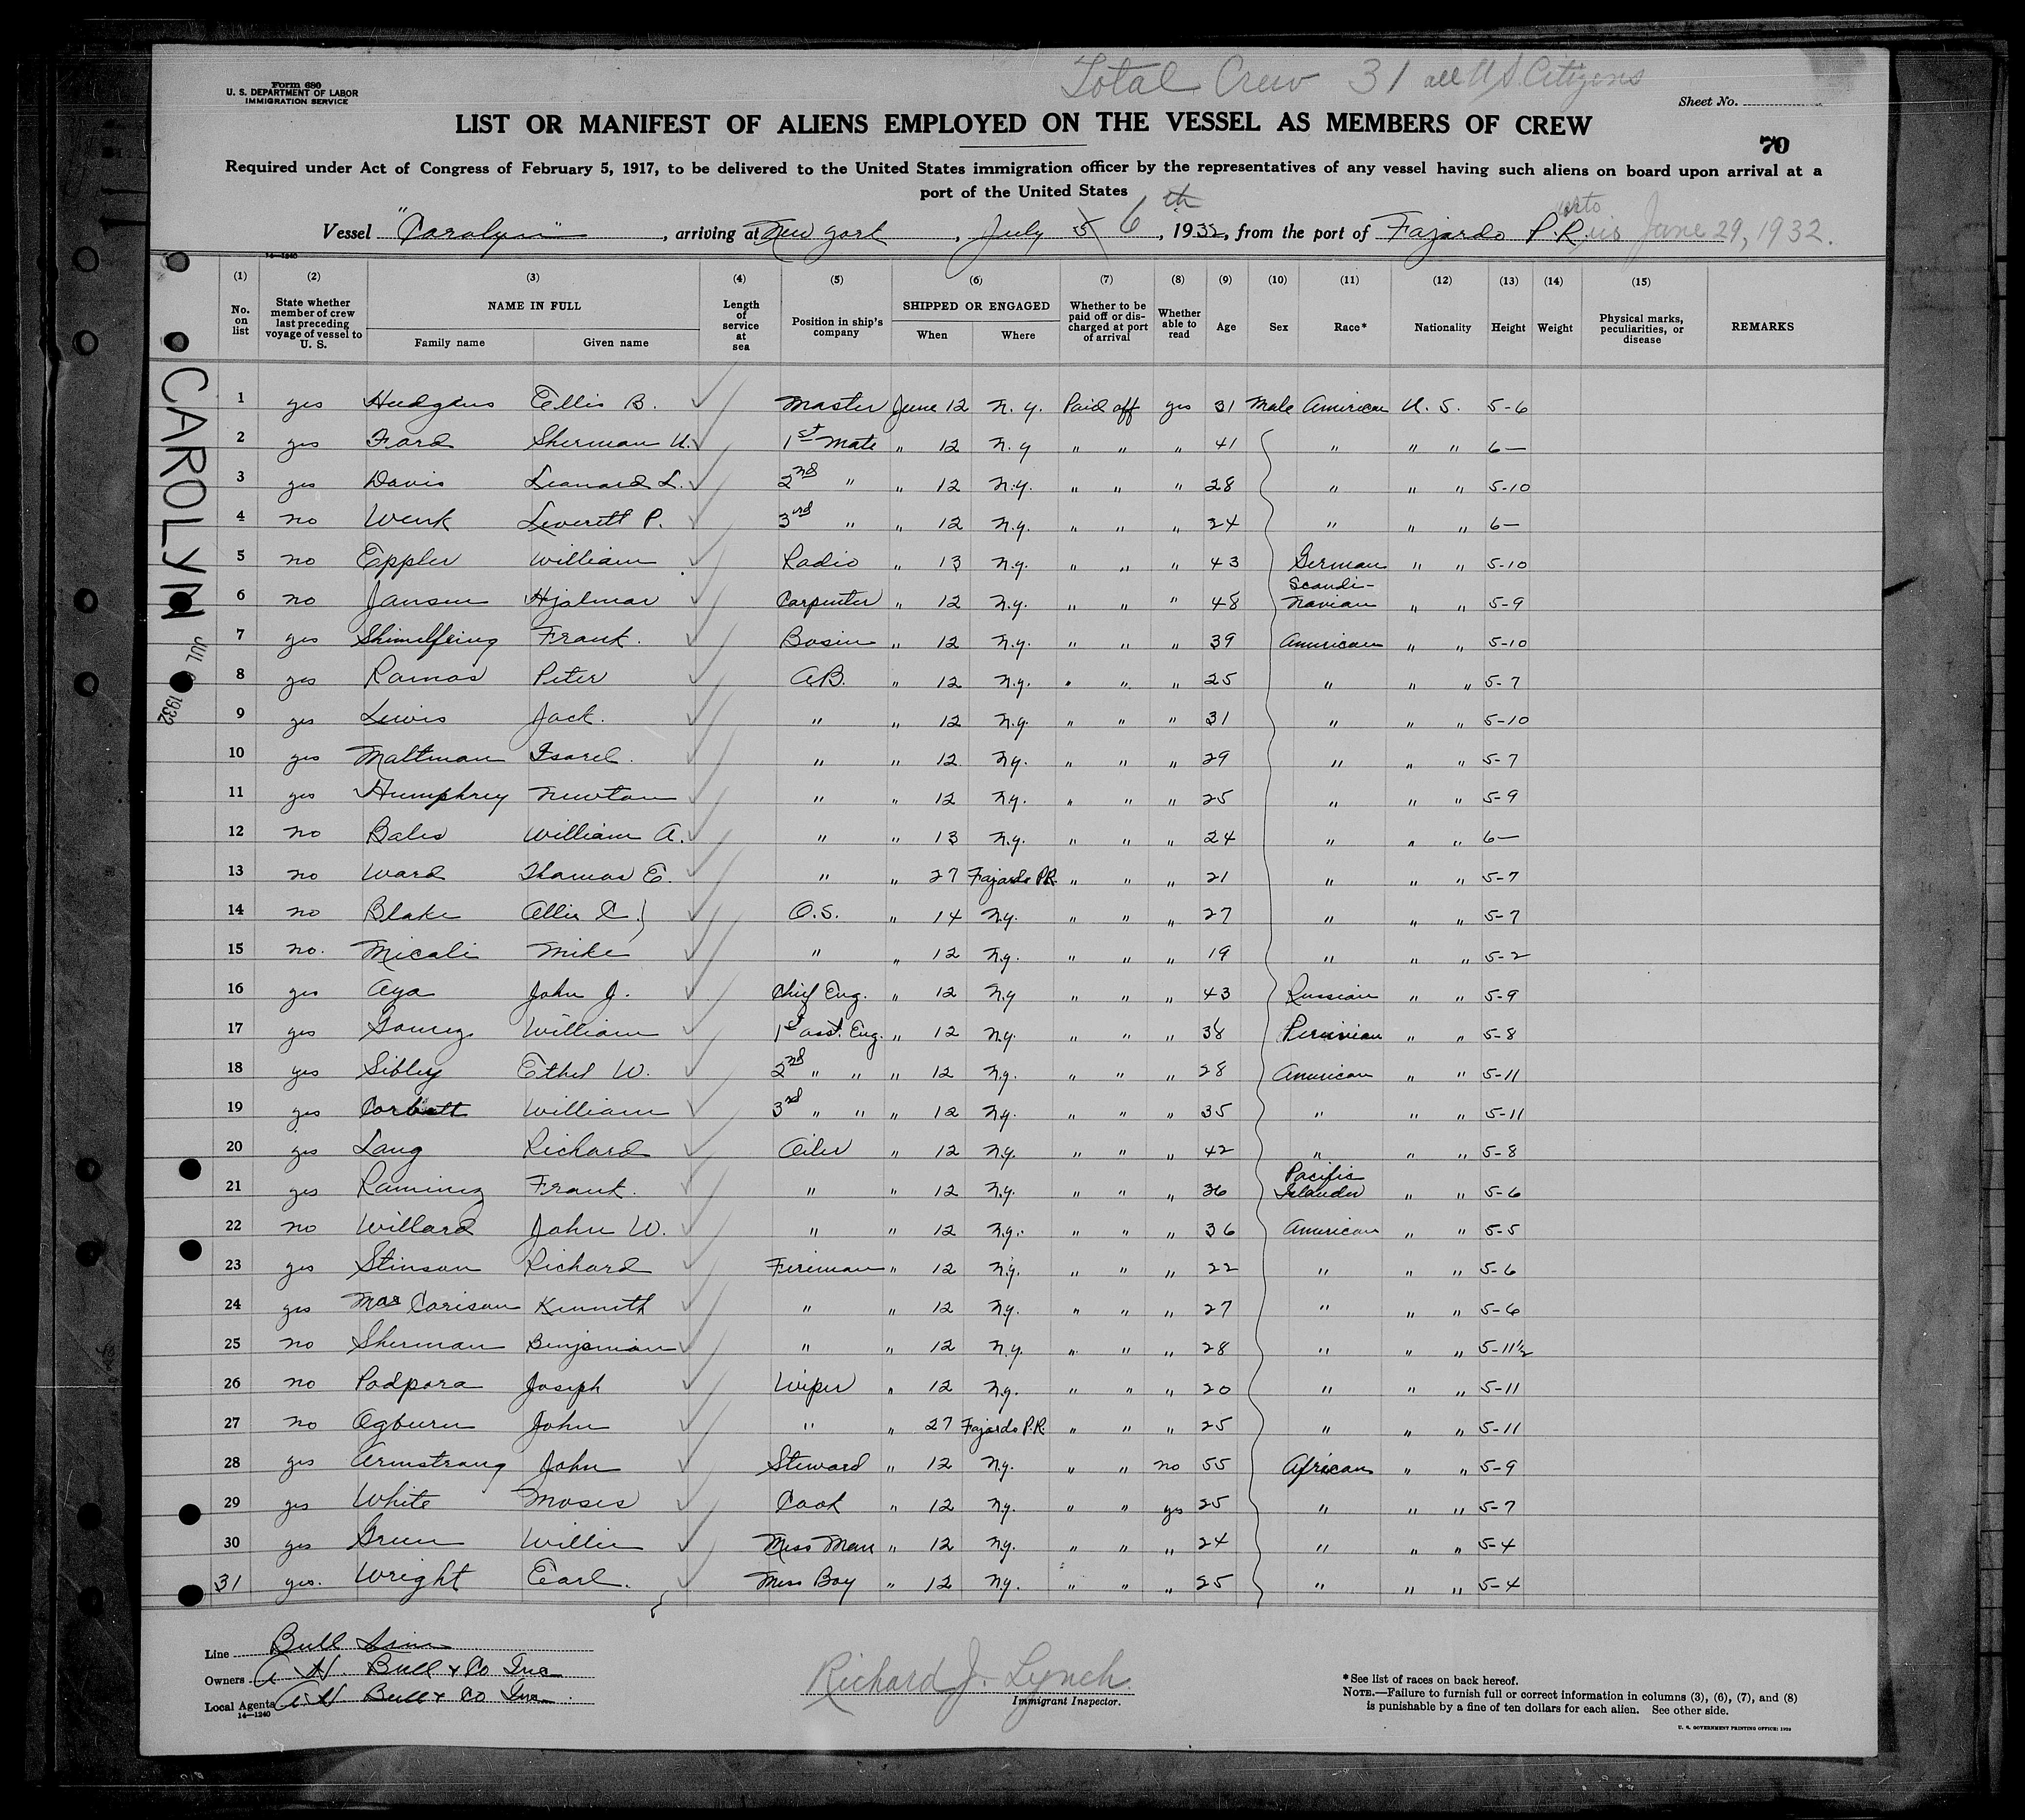 Total Crew 31 all U.S. Citizens
Form 680
U. S. DEPARTMENT OF LABOR
IMMIGRATION SERVICE
Sheet No.
LIST OR MANIFEST OF ALIENS EMPLOYED ON THE VESSEL AS MEMBERS OF CREW
70
Required under Act of Congress of February 5, 1917, to be delivered to the United States immigration officer by the representatives of any vessel having such aliens on board upon arrival at a
port of the United States
Vessel "Carolyn", arriving at New York, July 5 6th, 1932, from the port of Fajardo P.R. June 29, 1932.
14—1240
(1) (2) (3) (4) (5) (6) (7) (8) (9) (10) (11) (12) (13) (14) (15)
No. on list
State whether member of crew last preceding voyage of vessel to U. S.
NAME IN FULL
Family name Given name
Length of service at sea
Position in ship's company
SHIPPED OR ENGAGED
When Where
Whether to be paid off or discharged at port of arrival
Whether able to read
Age Sex Race* Nationality Height Weight
Physical marks, peculiarities, or disease
REMARKS
CAROLYN
JUL 1932
1 yes Hudgins Ellis B. Master June 12 N.Y. Paid off yes 31 Male American U.S. 5-6
2 yes Ford Sherman U. 1st Mate " 12 N.Y " " " 41 " " " 6—
3 yes Davis Leonard L. 2nd " " 12 N.Y. " " " 28 " " " 5-10
4 no Wenk Leverett P. 3rd " " 12 N.Y. " " " 24 " " " 6—
5 no Eppler William Radio " 13 N.Y. " " " 43 German " " 5-10
6 no Jansen Hjalmar Carpenter " 12 N.Y. " " " 48 Scandi-navian " " 5-9
7 yes Shimelfening Frank. Bosin " 12 N.Y. " " " 39 American " " 5-10
8 yes Ramos Peter A.B. " 12 N.Y. " " " 25 " " " 5-7
9 yes Lewis Jack. " " 12 N.Y. " " " 31 " " " 5-10
10 yes Maltman Isarel. " " 12 N.Y. " " " 29 " " " 5-7
11 yes Humphrey Newton " " 12 N.Y. " " " 25 " " " 5-9
12 no Bales William A. " " 13 N.Y. " " " 24 " " " 6—
13 no Ward Thomas E. " " 27 Fajardo P.R. " " " 21 " " " 5-7
14 no Blake Allie C. O.S. " 14 N.Y. " " " 27 " " " 5-7
15 no. Micali Mike " " 12 N.Y. " " " 19 " " " 5-2
16 yes Aya John J. Chief Eng. " 12 N.Y " " " 43 Russian " " 5-9
17 yes Gomez William 1st asst. Eng. " 12 N.Y. " " " 38 Peruvian " " 5-8
18 yes Sibley Ethel W. 2nd " " " 12 N.Y. " " " 28 American " " 5-11
19 yes Corbett William 3rd " " " 12 N.Y. " " " 35 " " " 5-11
20 yes Lang Richard Oiler " 12 N.Y. " " " 42 " " " 5-8
21 yes Ramirez Frank. " " 12 N.Y. " " " 36 Pacific Islander " " 5-6
22 no Willard John W. " " 12 N.Y. " " " 36 American " " 5-5
23 yes Stinson Richard Fireman " 12 N.Y. " " " 22 " " " 5-6
24 yes Kenneth " " 12 N.Y. " " " 27 " " " 5-6
25 no Sherman Benjamin " " 12 N.Y. " " " 28 " " " 5-11½
26 no Podpora Joseph Wiper " 12 N.Y. " " " 20 " " " 5-11
27 no Ogburn John " " 27 Fajardo P.R. " " " 25 " " " 5-11
28 yes Armstrong John Steward " 12 N.Y. " " no 55 African " " 5-9
29 yes White Moses Cook " 12 N.Y. " " yes 25 " " " 5-7
30 yes Green Willie Mess Man " 12 N.Y. " " " 24 " " " 5-4
31 yes. Wright Earl. Mess Boy " 12 N.Y. " " " 25 " " " 5-4
Line Bull Line
Owners A. H. Bull & Co Inc
Local Agents A H Bull & Co Inc.
14—1240
Richard J. Lynch
Immigrant Inspector.
*See list of races on back hereof.
NOTE.—Failure to furnish full or correct information in columns (3), (6), (7), and (8)
is punishable by a fine of ten dollars for each alien. See other side.
U. S. GOVERNMENT PRINTING OFFICE: 1929